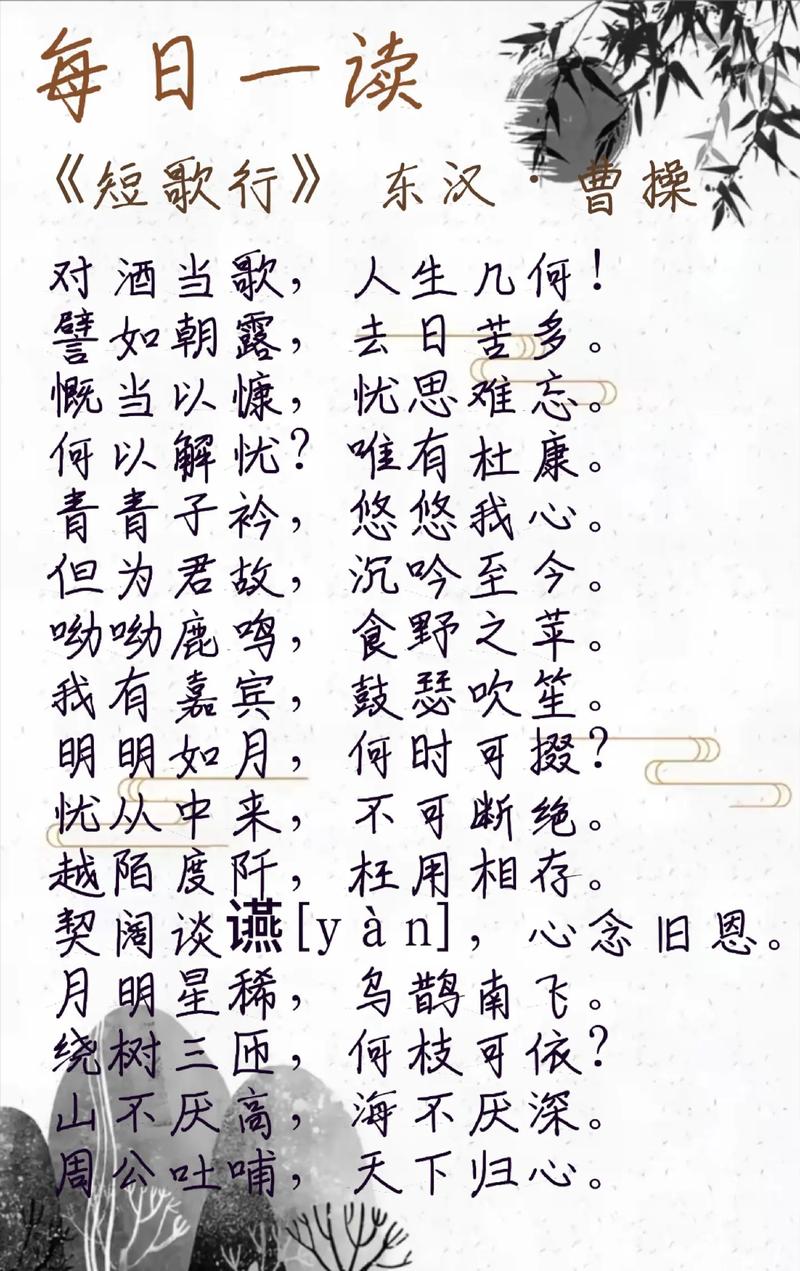 每日一读
《短歌行》 东汉·曹操
对酒当歌，人生几何！
譬如朝露，去日苦多。
慨当以慷，忧思难忘。
何以解忧？唯有杜康。
青青子衿，悠悠我心。
但为君故，沉吟至今。
呦呦鹿鸣，食野之苹。
我有嘉宾，鼓瑟吹笙。
明明如月，何时可掇？
忧从中来，不可断绝。
越陌度阡，枉用相存。
契阔谈讌[yàn]，心念旧恩。
月明星稀，乌鹊南飞。
绕树三匝，何枝可依？
山不厌高，海不厌深。
周公吐哺，天下归心。